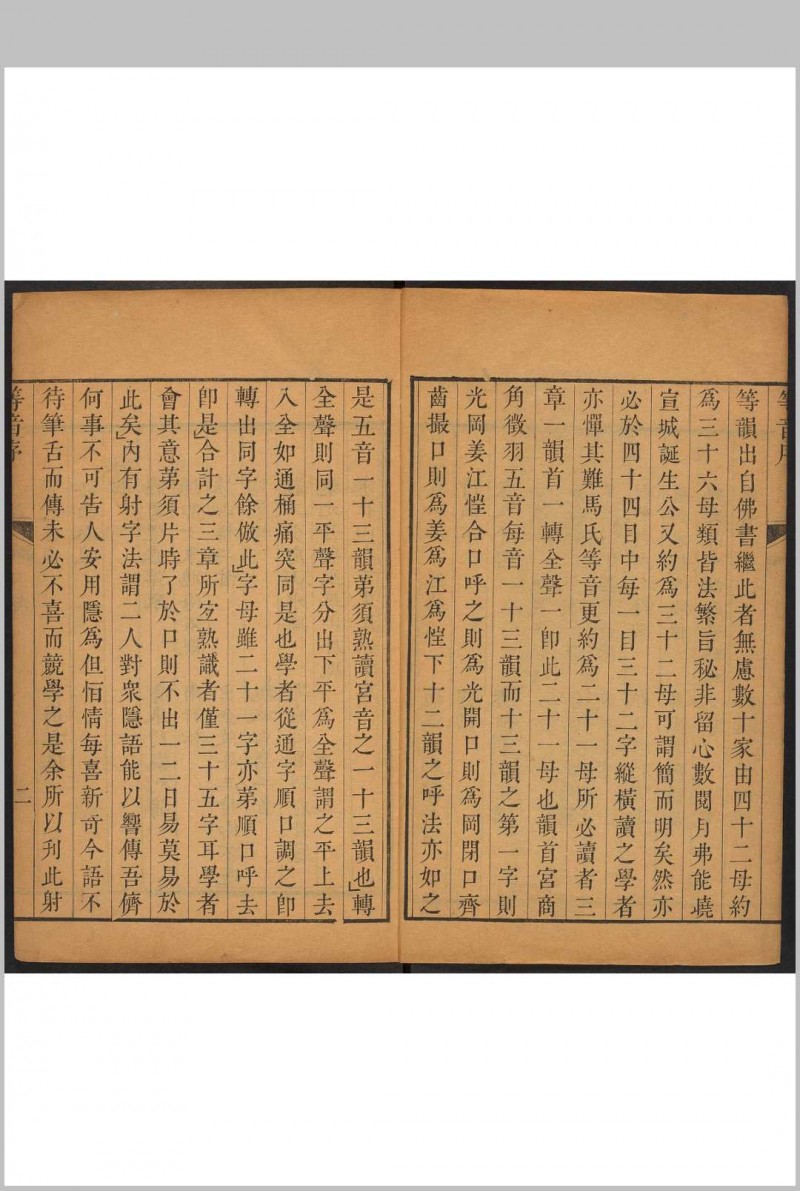 等韻出自佛書繼此者無慮數十家由四十二母約
爲三十六母類皆法繁旨秘非留心數閱月弗能曉
宣城誕生公又約爲三十二母可謂簡而明矣然亦
必於四十四目中每一目三十二字縱橫讀之學者
亦憚其難馬氏等音更約爲二十一母所必讀者三
章一韻首一轉全聲一卽此二十一母也韻首宮商
角徵羽五音每音一十三韻而十三韻之第一字則
光岡姜江惶合口呼之則爲光開口則爲岡閉口齊
齒撮口則爲姜爲江爲惶下十二韻之呼法亦如之
是五音一十三韻第須熟讀宮音之一十三韻也」轉
全聲則同一平聲字分出下平爲全聲謂之平上去
入全如通桶痛突同是也學者從通字順口調之卽
轉出同字餘倣此」字母雖二十一字亦第順口呼去
卽是」合計之三章所宐熟識者僅三十五字耳學者
會其意第須片時了於口則不出一二日易莫易於
此矣」內有射字法謂二人對衆隱語能以響傳吾儕
何事不可告人安用隱爲但恒情每喜新奇今語不
待筆舌而傳未必不喜而競學之是余所以刋此射
等音序
二